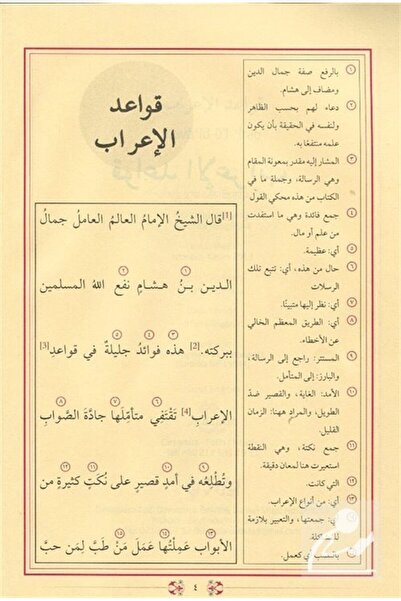 قواعد
الإعراب
[1]قال الشيخُ الإمامُ العالمُ العاملُ جمالُ
الدين بنُ هشامٍ نفع اللهُ المسلمين
ببركته. [2] هذه فوائدُ جليلةٌ في قواعدِ [3]
الإعرابِ [4] تَقْتَفِي متأمِّلَها جادَّةَ الصَّوابِ
وتُطْلِعُه في أمدٍ قصيرٍ على نُكَتٍ كثيرةٍ من
الأبوابِ عَمِلْتُها عَمَلَ مَنْ طَبَّ لِمَن حبَّ
① بالرفع صفة جمال الدين
ومضاف إلى هشام.
② دعاء لهم بحسب الظاهر
ولنفسه في الحقيقة بأن يكون
علمه منتفعًا به.
③ المشار إليه مقدر بمعونة المقام
وهي الرسالة، وجملة ما في
الكتاب من هذه محكي القول
④ جمع فائدة وهي ما استفدت
من علم أو مال.
⑤ أي: عظيمة.
⑥ حال من هذه، أي: تتبع تلك
الرسالات
⑦ أي: نظر إليها متبينًا.
⑧ أي: الطريق المعظم الخالي
عن الأخطاء.
⑨ المستتر: راجع إلى الرسالة،
والبارز: إلى المتأمل.
⑩ الأمد: الغاية، والقصير ضدّ
الطويل، والمراد ههنا: الزمان
القليل.
⑪ جمع نكتة، وهي النقطة
استعيرت هنا لمعان دقيقة.
⑫ التي كانت.
⑬ أي: من أنواع الإعراب.
أي: جمعتها، والتعبير بلازمة
كعمل.
٤